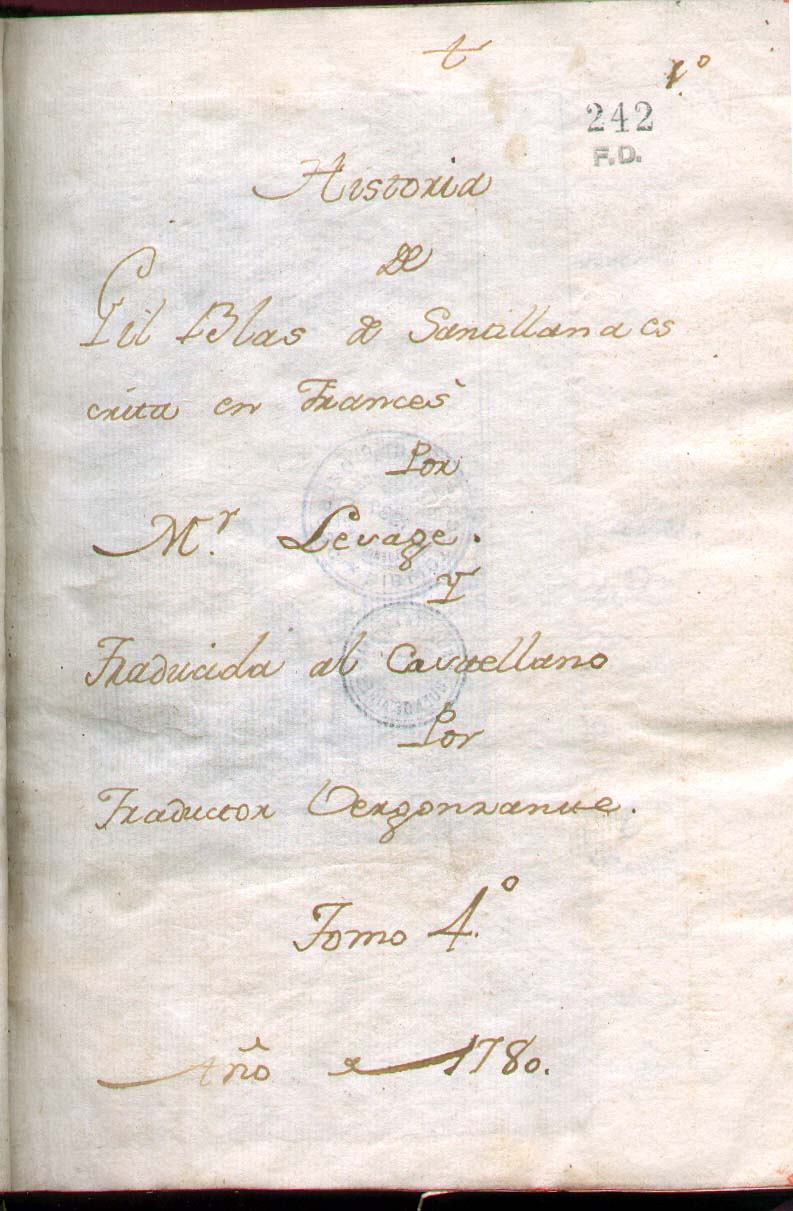 1.º
242
F.D.
Historia
de
Gil Blas de Santillana es
crita en Francès
Por
M.r Lesage.
Y
Traducida al Castellano
Por
Traductor Vergonzante.
Tomo 4.º
Año de 1780.